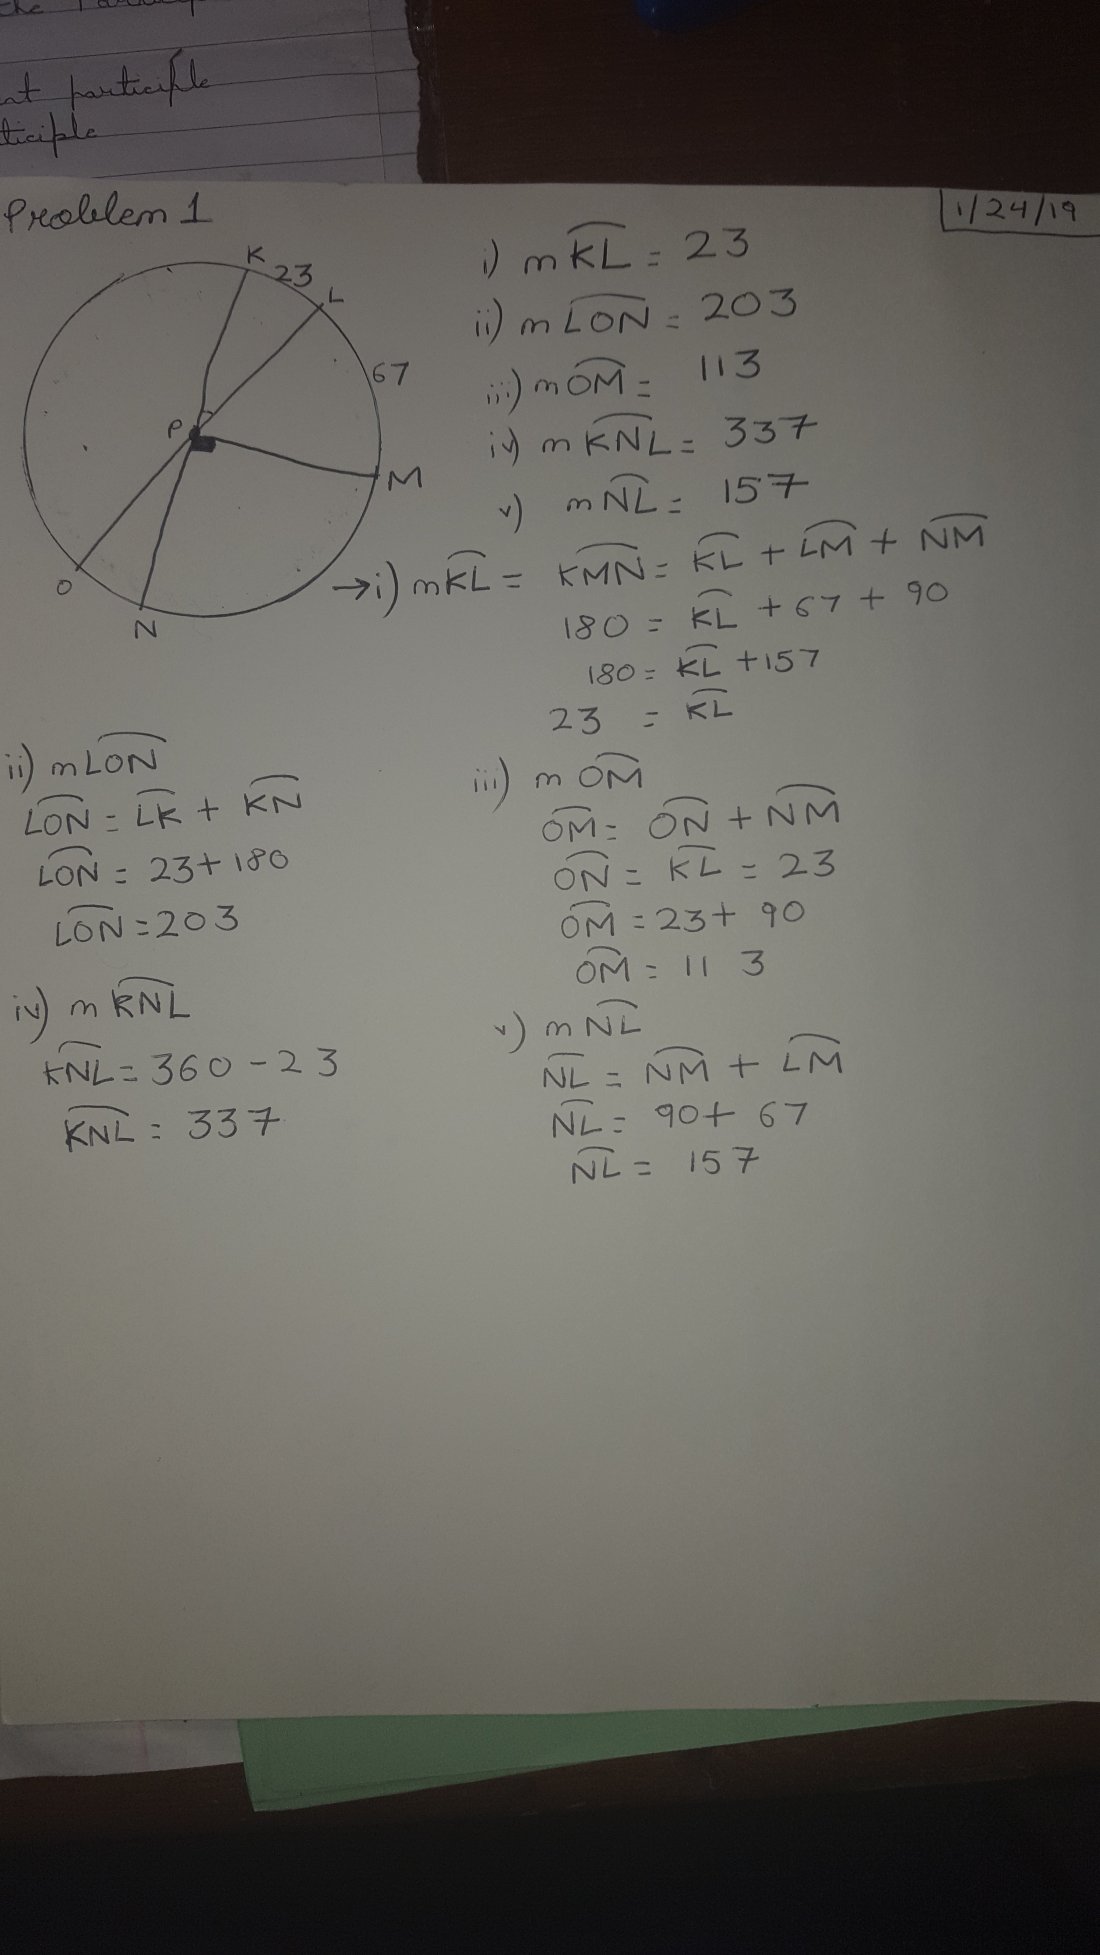 the
nt participle
ticiple
Problem 1
1/24/19
K
23
L
67
P
M
O
N
i) m KL = 23
ii) m LON = 203
iii) m OM = 113
iv) m KNL = 337
v) m NL = 157
→ i) mKL = KMN = KL + LM + NM
180 = KL + 67 + 90
180 = KL + 157
23 = KL
ii) mLON
LON = LK + KN
LON = 23 + 180
LON = 203
iii) m OM
OM = ON + NM
ON = KL = 23
OM = 23 + 90
OM = 113
iv) m KNL
KNL = 360 - 23
KNL = 337
v) m NL
NL = NM + LM
NL = 90 + 67
NL = 157